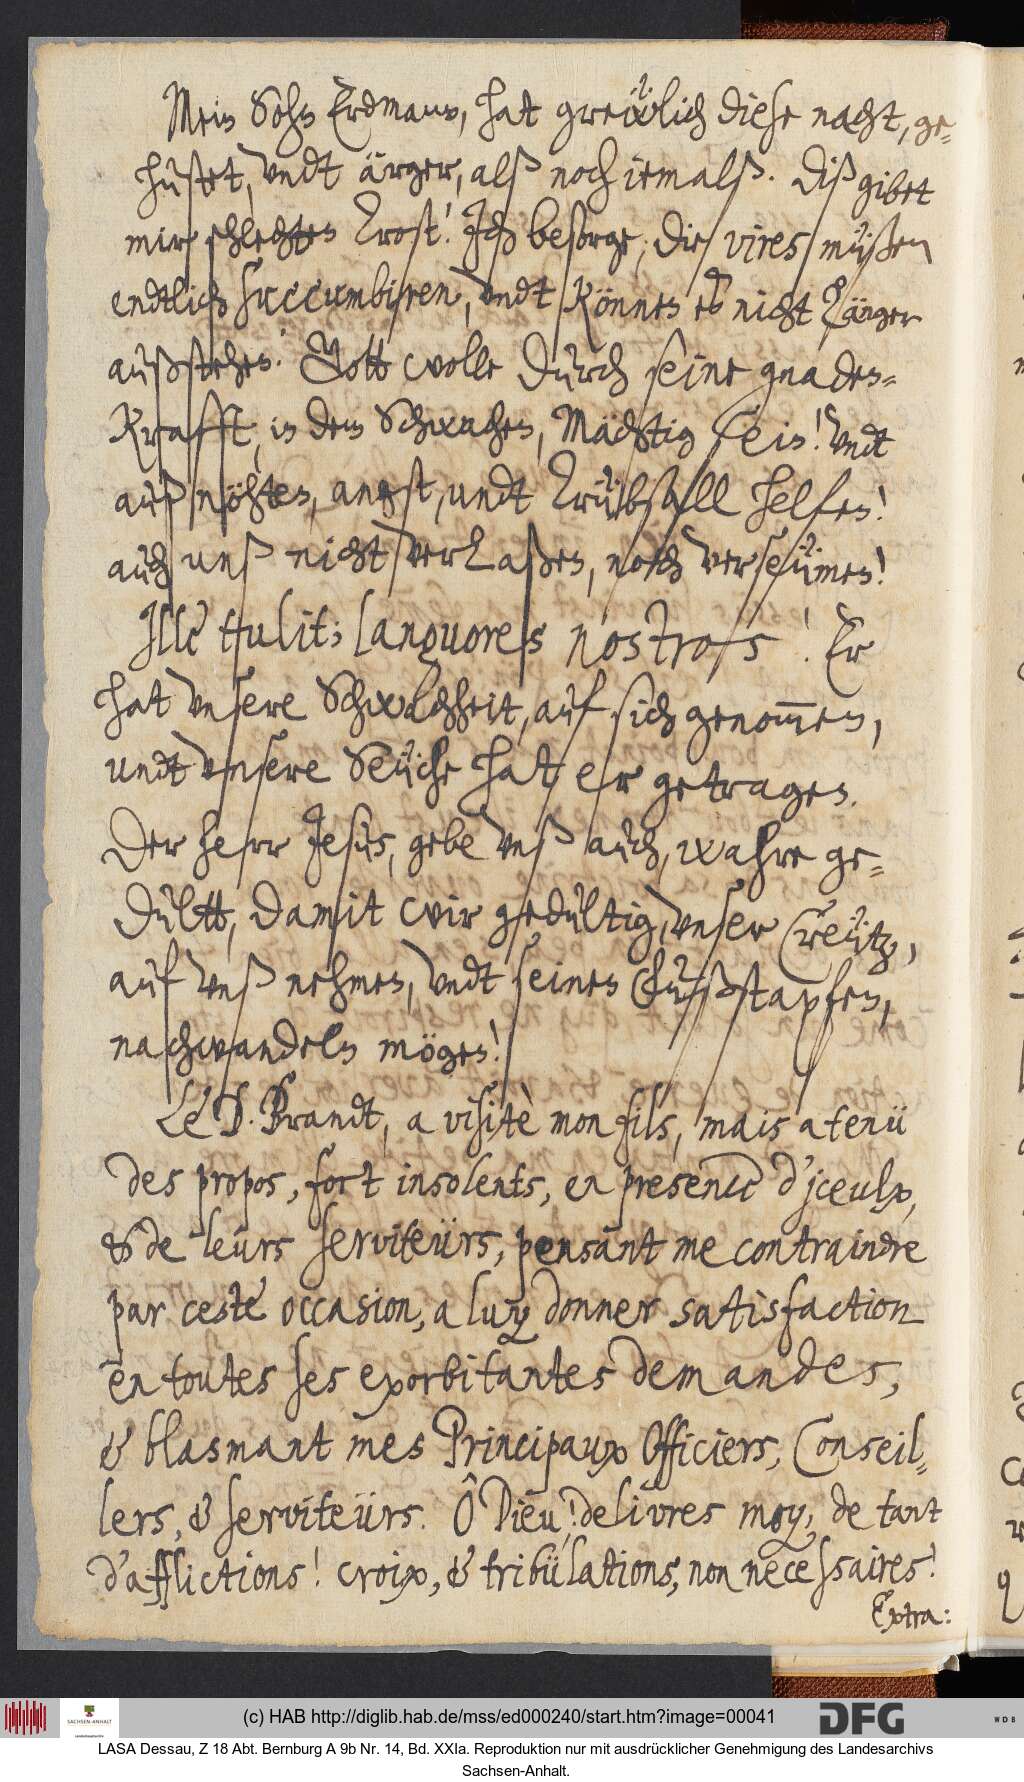 Mein Sohn Erdmann, hat greẅlich diese nacht, ge-
hustet, vndt ärger, alß noch iemalß. Diß gibet
mir schlechten Trost! Ich besorge, die vires müßen
endtlich succumbiren, vndt können es nicht länger
außstehen. Gott wolle durch seine gnaden-
Krafft, in dem Schwachen, Mächtig sein! vndt
auß nöhten, angst, undt Trübsall helfen!
auch unß nicht verlaßen, noch verseümen!
Ille tulit; languores nostros! Er
hat vnsere Schwachheit, auf sich genom̅en,
undt vnsere Seüche hat er getragen.
Der herr Jesus, gebe vnß auch, wahre ge-
dultt, damit wir gedultig, vnser Creütz,
auf vnß nehmen, vndt seinen Fußstapfen,
nachwandeln mögen!
Le D. Brandt, a visitè mon fils, mais a tenü
des propos, fort insolents, en presence d'jceulx,
& de leurs serviteürs, pensant me contraindre
par ceste occasion, a luy donner satisfaction
en toutes ses exorbitantes demandes,
& blasmant mes Principaux Officiers, Conseil-
lers, & serviteürs. Ô Dieu! delivres moy, de tant
d'afflictions! croix, & tribülations, non necessaires!
Extra:
(c) HAB http://diglib.hab.de/mss/ed000240/start.htm?image=00041
SACHSEN-ANHALT
DFG
WDB
LASA Dessau, Z 18 Abt. Bernburg A 9b Nr. 14, Bd. XXIa. Reproduktion nur mit ausdrücklicher Genehmigung des Landesarchivs
Sachsen-Anhalt.